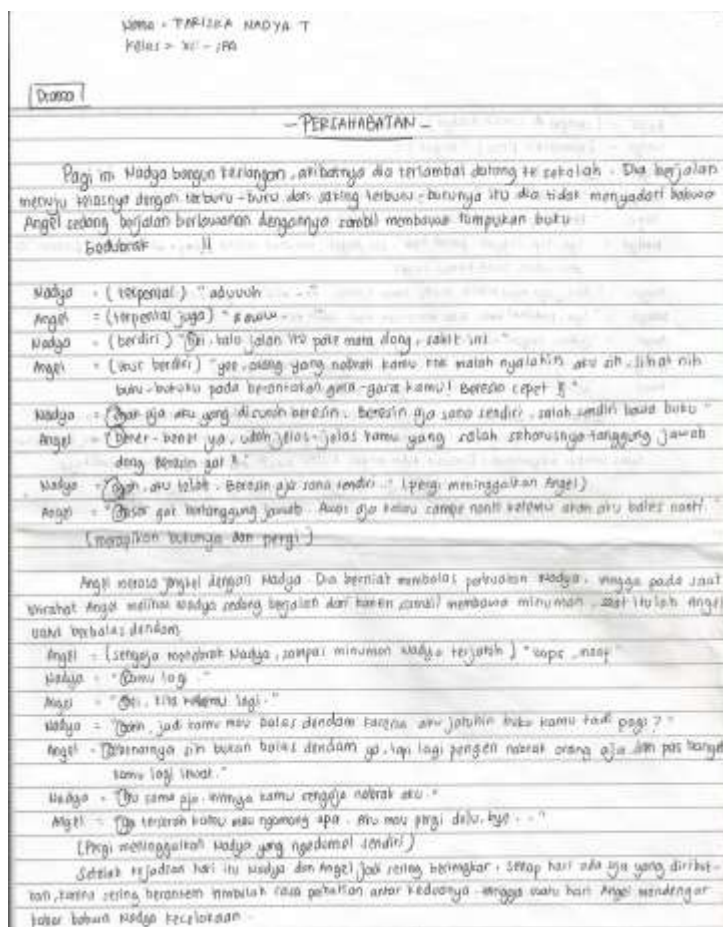 Nama = TARISKA NADYA T
Kelas = XI - IPA
Drama
- PERSAHABATAN -
Pagi ini Nadya bangun kesiangan, akibatnya dia terlambat datang ke sekolah. Dia berjalan
menuju kelasnya dengan terburu-buru dan saking terburu-burunya itu dia tidak menyadari bahwa
Angel sedang berjalan berlawanan dengannya sambil membawa tumpukan buku
Gedubrak !!
Nadya = (terpental) "aduuuh ..."
Angel = (terpental juga) "aww..."
Nadya = (berdiri) " kalo jalan itu pake mata dong, sakit ini."
Angel = (ikut berdiri) " orang yang nabrak kamu malah nyalahin aku sih, lihat nih
buku-bukuku pada berantakan gara-gara kamu! Beresin cepet !!"
Nadya = " aja aku yang disuruh beresin. Beresin aja sana sendiri, salah sendiri bawa buku"
Angel = "Bener-bener ya, udah jelas-jelas kamu yang salah seharusnya tanggung jawab
dong. Beresin gak !!"
Nadya = " aku telat. Beresin aja sana sendiri.." (pergi meninggalkan Angel)
Angel = "Dasar gak bertanggung jawab. Awas aja kalau sampe nanti ketemu akan aku bales nanti."
(merapikan bukunya dan pergi)
Angel merasa jengkel dengan Nadya. Dia berniat membalas perbuatan Nadya, hingga pada saat
istirahat Angel melihat Nadya sedang berjalan dari kantin sambil membawa minuman, saat itulah Angel
berbalas dendam.
Angel = (sengaja menabrak Nadya, sampai minuman Nadya terjatuh) "oops, maap"
Nadya = "Kamu lagi."
Angel = " kita ketemu lagi."
Nadya = " jadi kamu mau balas dendam karena aku jatuhin buku kamu tadi pagi?"
Angel = "Sebenarnya sih bukan balas dendam ya, tapi lagi pengen nabrak orang aja dan pas banget
kamu lagi lewat."
Nadya = "Itu sama aja, intinya kamu sengaja nabrak aku."
Angel = " terserah kamu mau ngomong apa. Aku mau pergi dulu, bye ..."
(Pergi meninggalkan Nadya yang ngedumel sendiri)
Setelah kejadian hari itu Nadya dan Angel jadi sering bertengkar, setiap hari ada aja yang diribut-
kan, karena sering berantem timbulah rasa antar keduanya. Hingga suatu hari Angel mendengar
kabar bahwa Nadya kecelakaan.